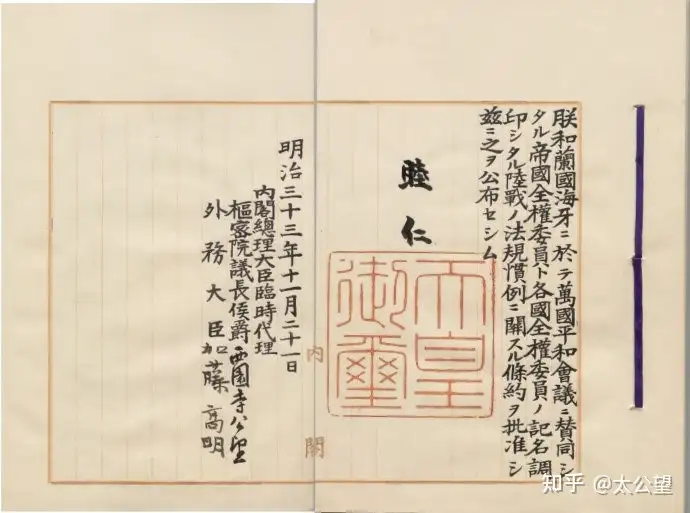 朕和蘭國海牙ニ於テ萬國平和會議ニ賛同シ
タル帝國全權委員ト各國全權委員ノ記名調
印シタル陸戰ノ法規慣例ニ關スル條約ヲ批准シ
茲ニ之ヲ公布セシム
睦仁
天皇
御璽
明治三十三年十一月二十一日
内閣總理大臣臨時代理
樞密院議長侯爵西園寺公望
外務大臣加藤高明
内閣
知乎 @太公望